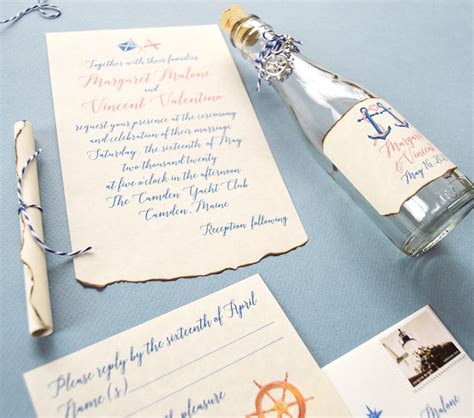 Together with their families
Margaret Malone
and
Vincent Valentino
request your presence at the ceremony
and celebration of their marriage
Saturday, the sixteenth of May
two thousand twenty
at five o'clock in the afternoon
The Camden Yacht Club
Camden, Maine
Reception following
Margaret
& Vincent
May 16, 20
Please reply by the sixteenth of April
Name(s)
pleasure
Malone